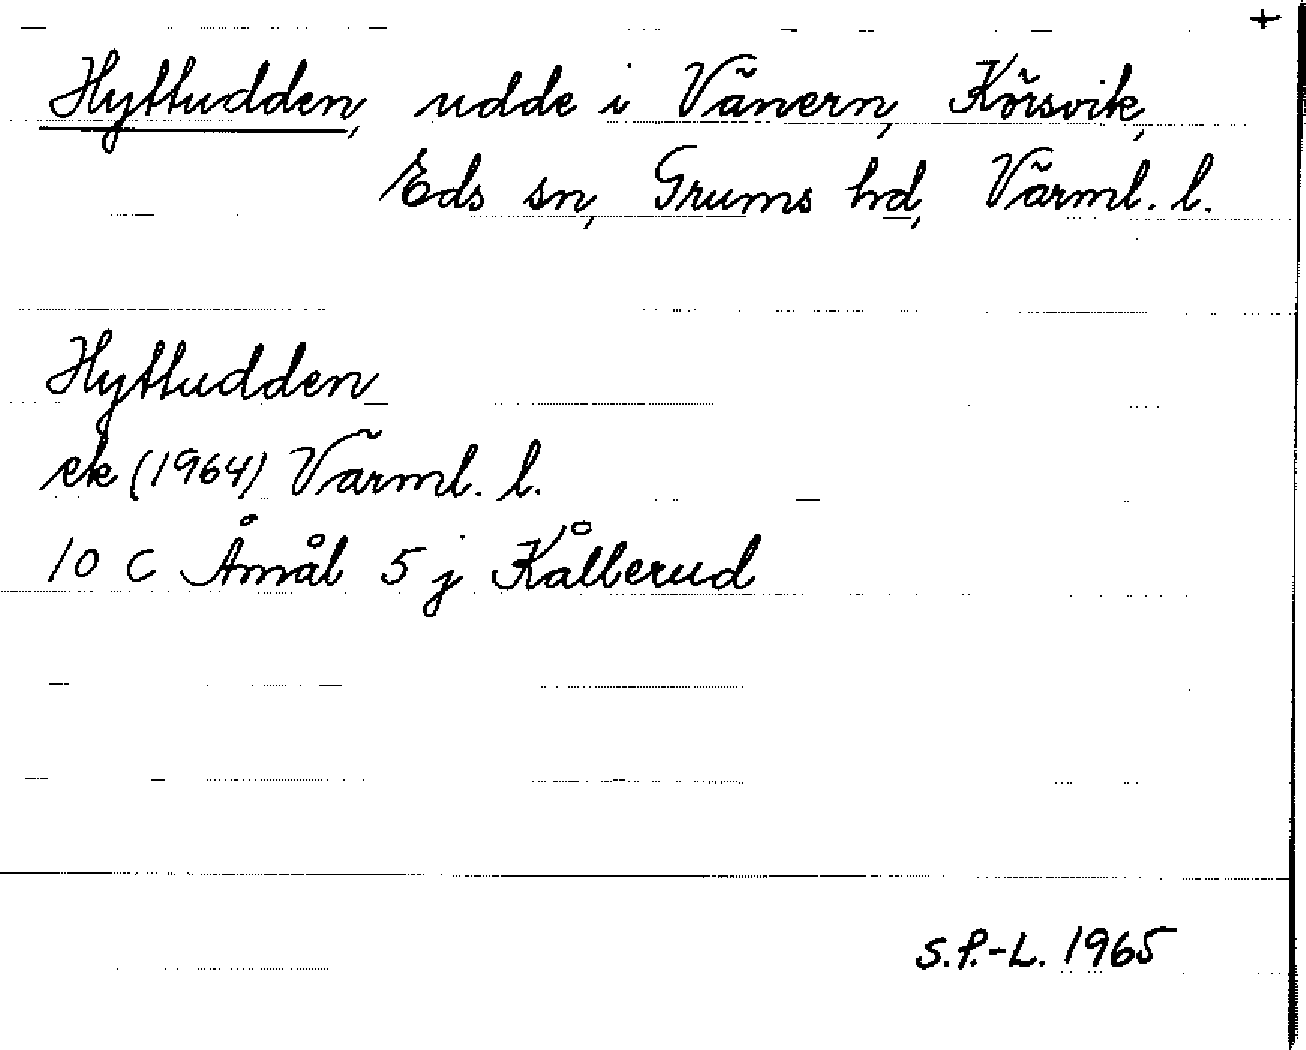 +
Hyttudden, udde i Vänern, Körsvik,
Eds sn, Grums hd, Värml. l.
Hyttudden
ek (1964) Värml. l.
10 C Åmål 5 j Kållerud
S.P.-L. 1965